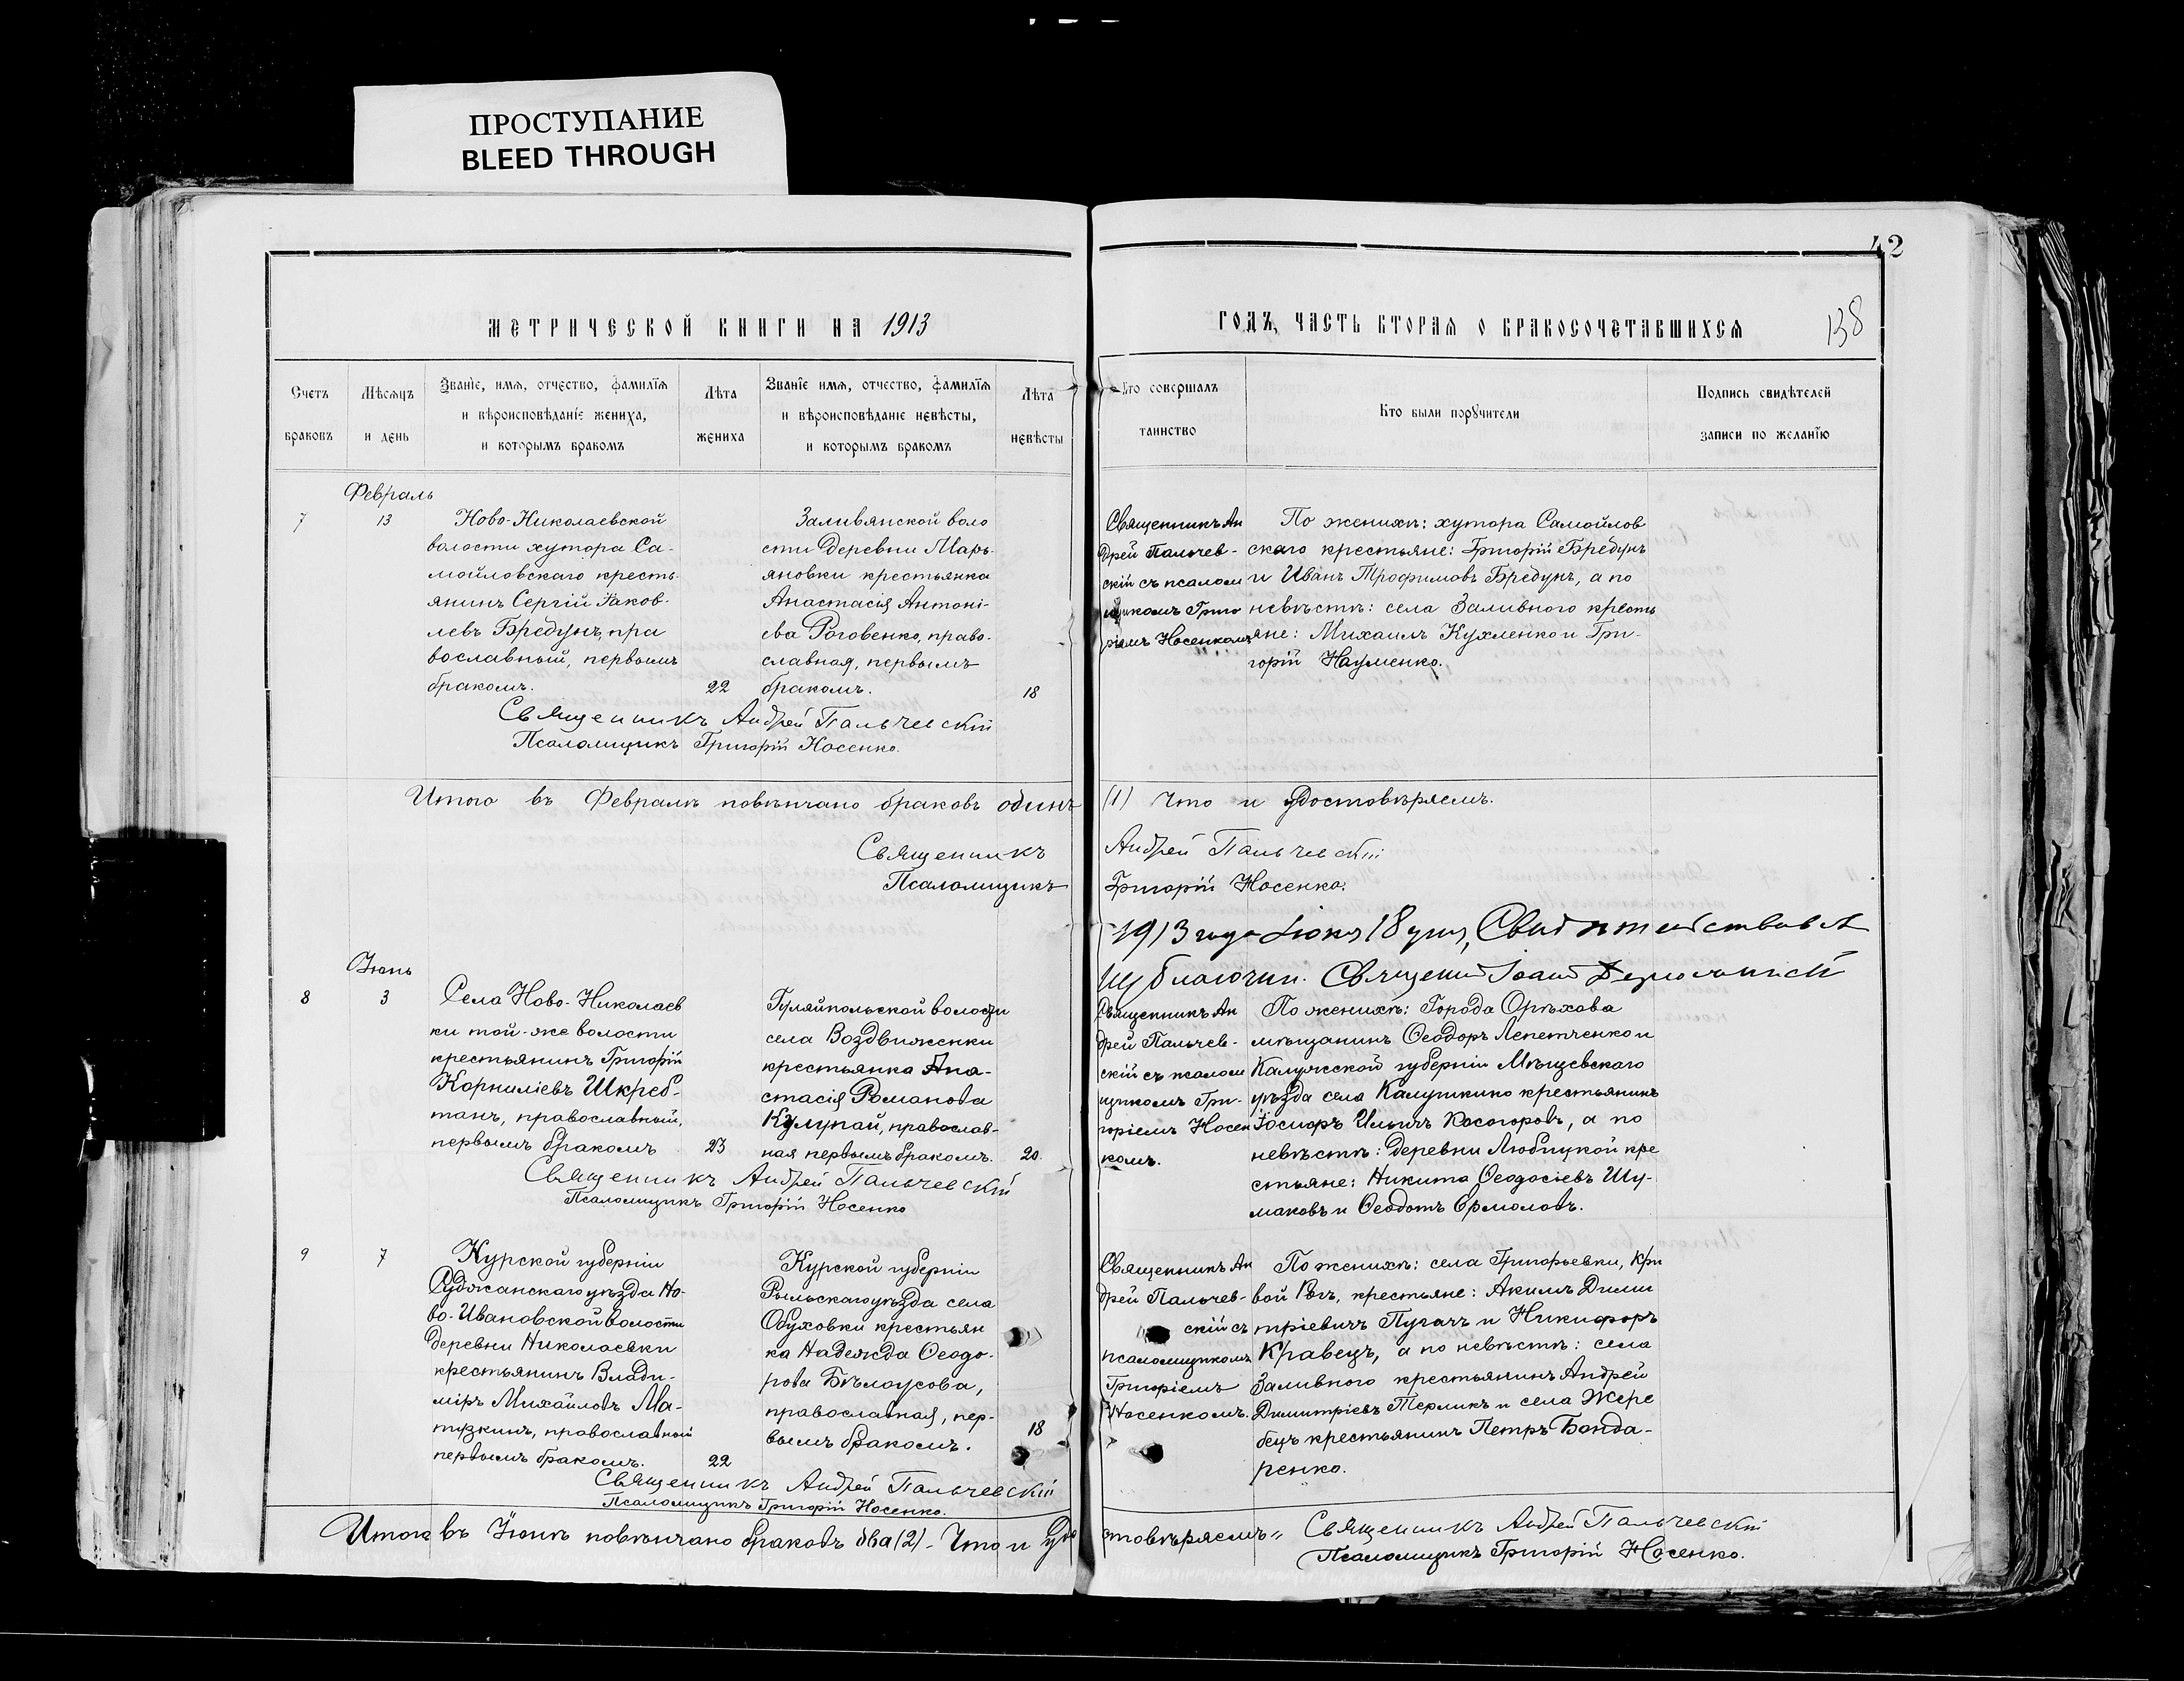 ПРОСТУПАНИЕ
BLEED THROUGH
42
138
МЕТРИЧЕСКОЙ КНИГИ НА 1913
ГОДЪ, ЧАСТЬ ВТОРАЯ О БРАКОСОЧЕТАВШИХСЯ
Счетъ браковъ
Мѣсяцъ и день
Званїе, имя, отчество, фамилїя
и вѣроисповѣданїе жениха,
и которымъ бракомъ
Лѣта жениха
Званїе имя, отчество, фамилїя
и вѣроисповѣданїе невѣсты,
и которымъ бракомъ
Лѣта невѣсты
Кто совершалъ
таинство
Кто были поручители
Подпись свидѣтелей
записи по желанїю
Февраль
7
13
Ново-Николаевской
волости хутора Са-
мойловскаго кресть-
янинъ Сергій Іаков-
левъ Бредунъ, пра
вославный, первымъ
бракомъ.
22
Заливянской воло
сти деревни Марь-
яновки крестьянка
Анастасія Антоні-
ева Роговенко, право-
славная, первымъ
бракомъ.
18
Священникъ Ан
дрей Пальчев-
скій съ псалом
щикомъ Григо
ріемъ Носенкомъ
По женихѣ: хутора Самойлов
скаго крестьяне: Григорій Бредунъ
и Иванъ Трофимовъ Бредунъ, а по
невѣстѣ: села Заливного кресть
яне: Михаилъ Кухленко и Гри-
горій Науменко.
Священникъ Андрей Пальчевскій
Псаломщикъ Григорій Носенко.
Итого въ Февралѣ повѣнчано браковъ одинъ (1) Что и удостовѣряемъ.
Священникъ Андрей Пальчевскій
Псаломщикъ Григорій Носенко.
1913 года Іюня 18 дня, Свидѣтельствовалъ
благочин. Священ Іоан
Іюнь
8
3
Села Ново-Николаев
ки той-же волости
крестьянинъ Григорій
Корниліевъ Шкреб-
танъ, православный,
первымъ бракомъ
23
Гуляйпольской волости
села Воздвиженки
крестьянка Ана-
стасія Романова
Кулупай, православ-
ная первымъ бракомъ.
20
Священникъ Ан
дрей Пальчев-
скій съ псалом
щикомъ Гри-
горіемъ Носен
комъ.
По женихѣ: Города Орѣхова
мѣщанинъ Ѳеодоръ Лепетченко и
Калужской губерніи Мѣщевскаго
уѣзда села Калушкино крестьянинъ
Ильичъ Косогоровъ, а по
невѣстѣ: деревни Любицкой кре
стьяне: Никита Ѳеодосіевъ Шу-
маковъ и Ѳеодотъ Ермоловъ.
Священникъ Андрей Пальчевскій
Псаломщикъ Григорій Носенко
9
7
Курской губерніи
Суджанскаго уѣзда Но-
во-Ивановской волости
деревни Николаевки
крестьянинъ Влади-
міръ Михайловъ Ма-
тузкинъ, православный
первымъ бракомъ.
22
Курской губерніи
Рыльскаго уѣзда села
Обуховки крестьян
ка Надежда Ѳеодо-
рова Бѣлоусова,
православная, пер-
вымъ бракомъ.
18
Священникъ Ан
дрей Пальчев-
скій съ
псаломщикомъ
Григоріемъ
Носенкомъ.
По женихѣ: села Григорьевки, Кри
вой Рогъ, крестьяне: Акимъ Дими
тріевичъ Пугачъ и Никифоръ
Кравецъ, а по невѣстѣ: села
Заливного крестьянинъ Андрей
Димитріевъ Термикъ и села Жере
бецъ крестьянинъ Петръ Бонда-
ренко.
Священникъ Андрей Пальчевскій
Псаломщикъ Григорій Носенко.
Итого въ Іюнѣ повѣнчано браковъ два (2) - Что и удо стовѣряемъ„ Священникъ Андрей Пальчевскій
Псаломщикъ Григорій Носенко.